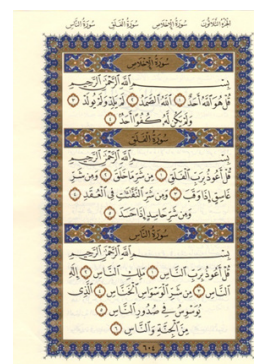 الجزء الثلاثون سورة الإخلاص سورة الفلق سورة الناس
سورة الإخلاص
بِسْمِ اللَّهِ الرَّحْمَٰنِ الرَّحِيمِ
قُلْ هُوَ اللَّهُ أَحَدٌ ١ اللَّهُ الصَّمَدُ ٢ لَمْ يَلِدْ وَلَمْ يُولَدْ ٣
وَلَمْ يَكُن لَّهُ كُفُوًا أَحَدٌ ٤
سورة الفلق
بِسْمِ اللَّهِ الرَّحْمَٰنِ الرَّحِيمِ
قُلْ أَعُوذُ بِرَبِّ الْفَلَقِ ١ مِن شَرِّ مَا خَلَقَ ٢ وَمِن شَرِّ
غَاسِقٍ إِذَا وَقَبَ ٣ وَمِن شَرِّ النَّفَّاثَاتِ فِي الْعُقَدِ ٤
وَمِن شَرِّ حَاسِدٍ إِذَا حَسَدَ ٥
سورة الناس
بِسْمِ اللَّهِ الرَّحْمَٰنِ الرَّحِيمِ
قُلْ أَعُوذُ بِرَبِّ النَّاسِ ١ مَلِكِ النَّاسِ ٢ إِلَٰهِ
النَّاسِ ٣ مِن شَرِّ الْوَسْوَاسِ الْخَنَّاسِ ٤ الَّذِي
يُوَسْوِسُ فِي صُدُورِ النَّاسِ ٥
مِنَ الْجِنَّةِ وَالنَّاسِ ٦
٦٠٤